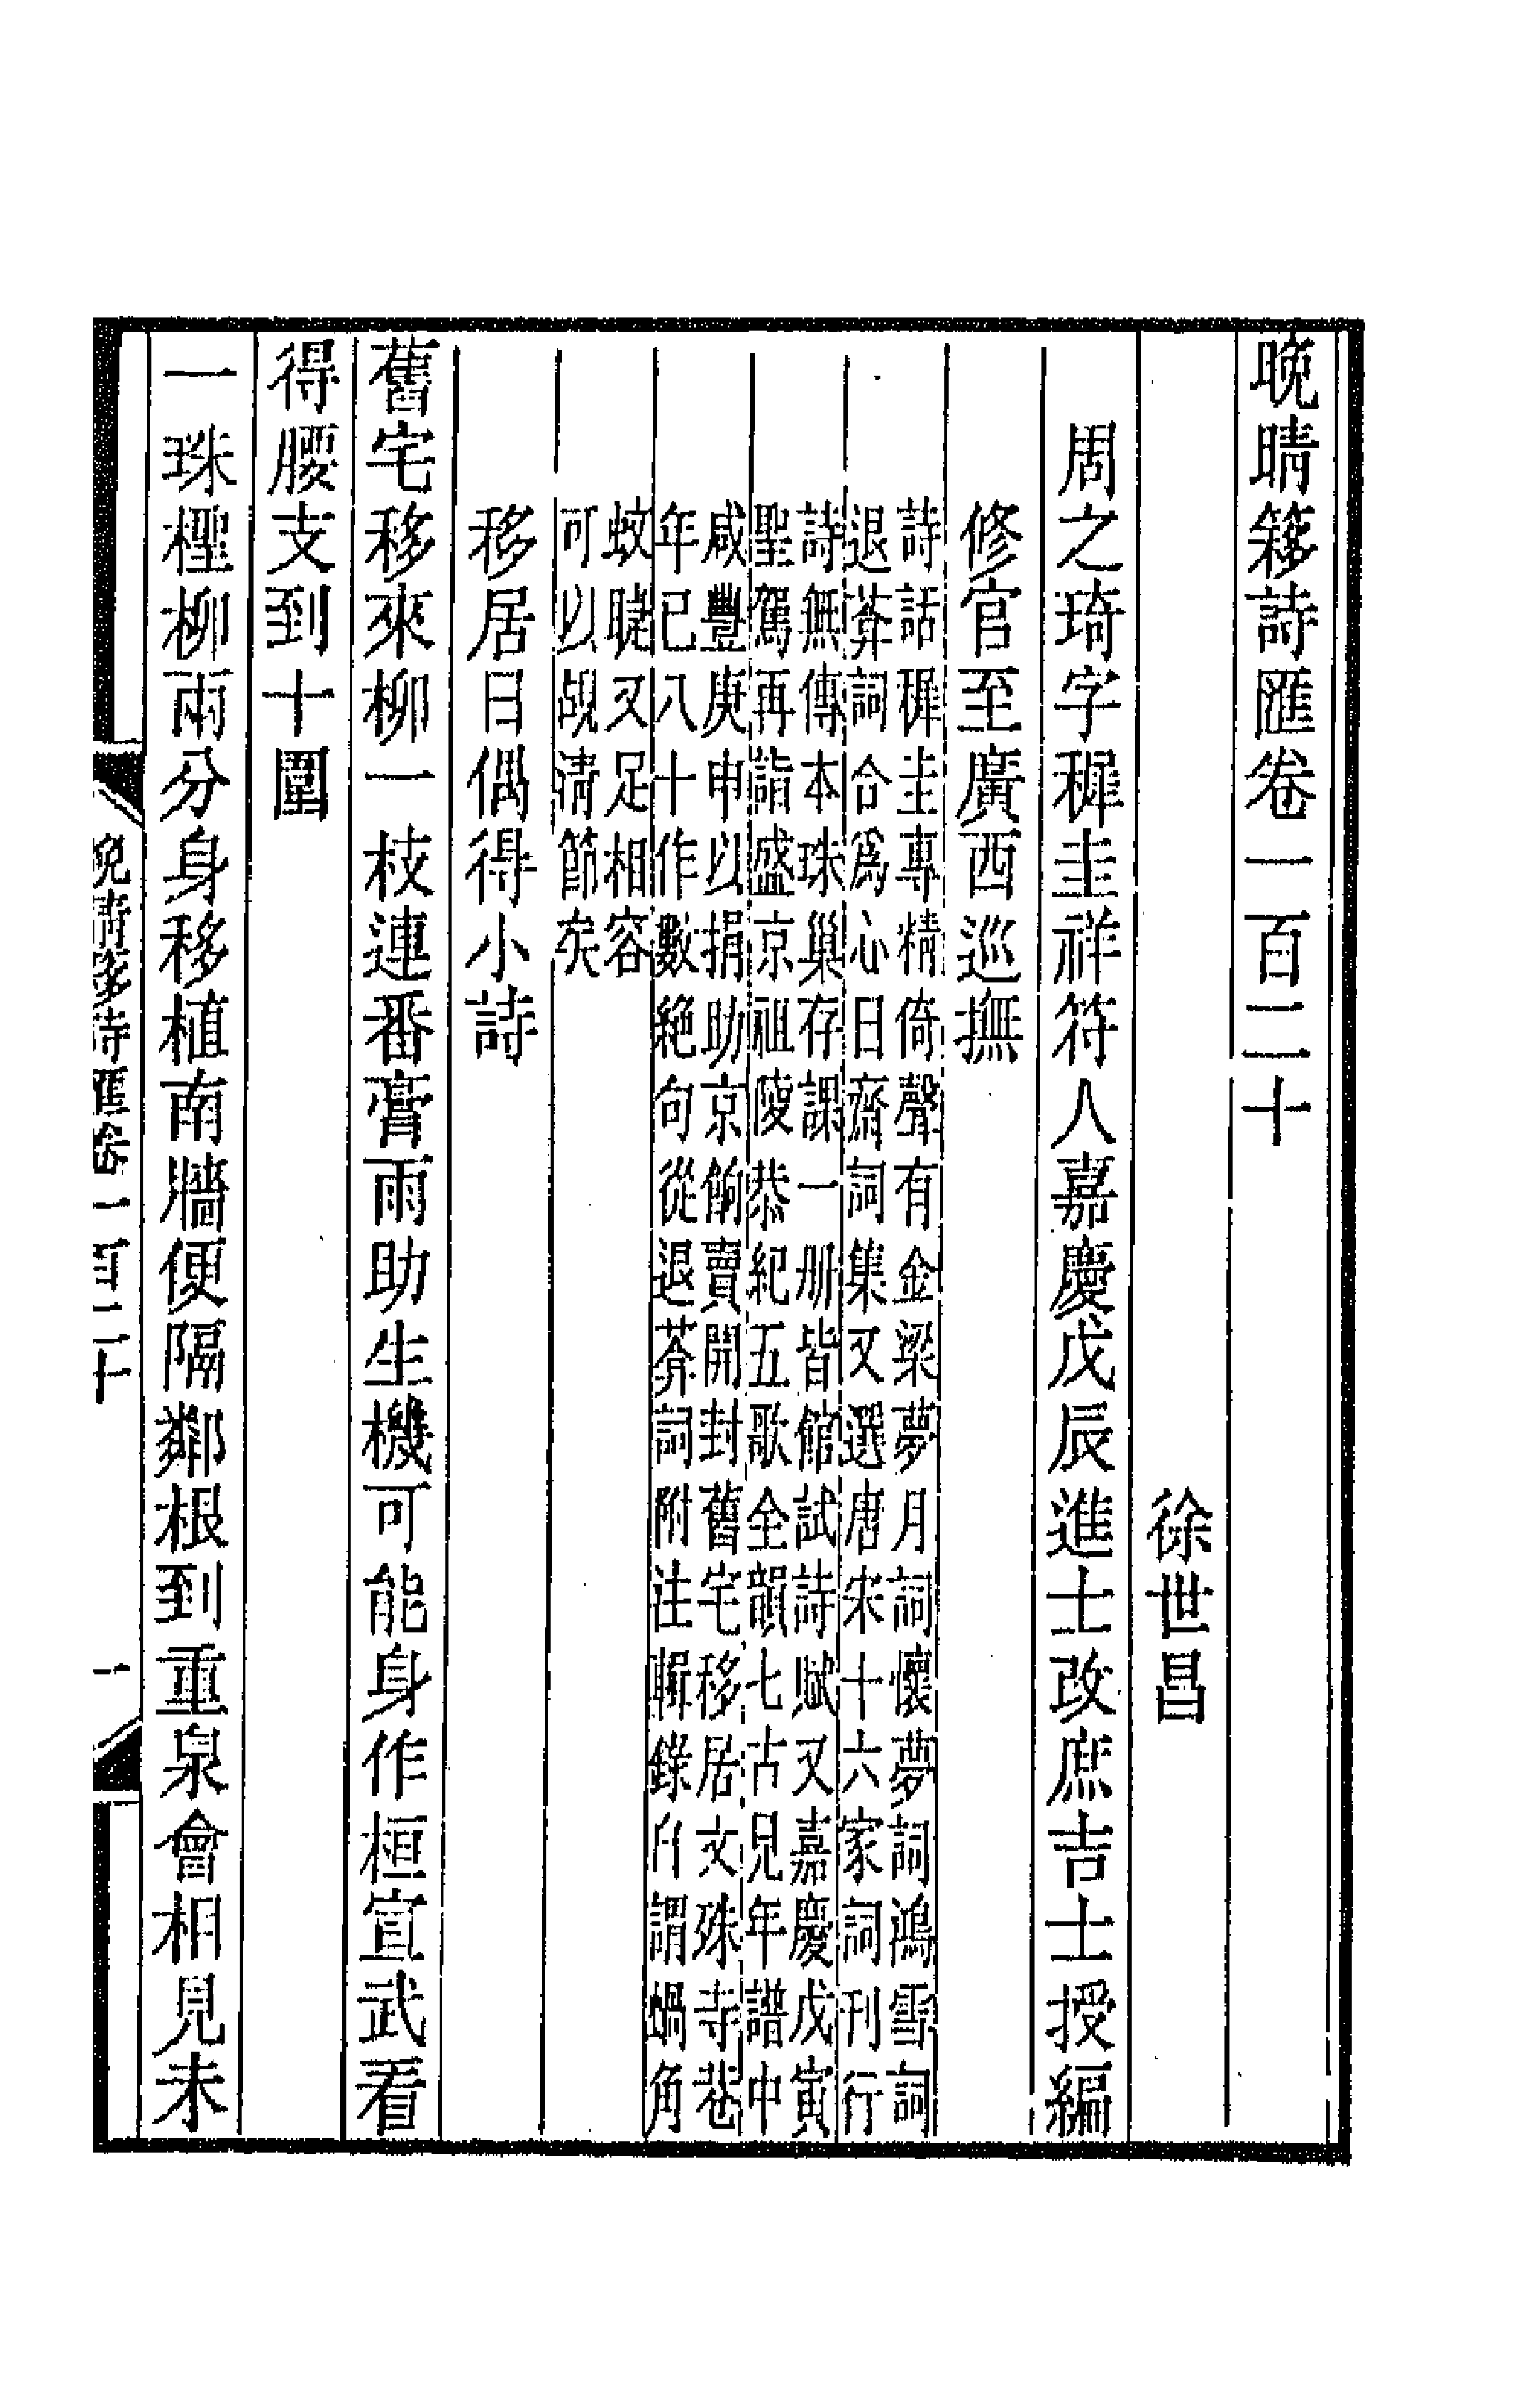 晚晴簃詩匯卷一百二十
徐世昌
周之琦字穉圭祥符人嘉慶戊辰進士改庶吉士授編
修官至廣西巡撫
詩話穉圭專精倚聲有金梁夢月詞懷夢詞鴻雪詞
退葊詞合為心日齋詞集又選唐宋十六家詞刊行
詩無傳本珠巢存課一册皆館試詩賦又嘉慶戊寅
聖駕再詣盛京祖陵恭紀五歌全韻七古見年譜中
咸豐庚申以捐助京餉賣開封舊宅移居文殊寺巷
年已八十作數絶句從退葊詞附注輯錄所謂蝸角
蚊睫又足相容
可以覘清節矣
移居日偶得小詩
舊宅移來柳一枝連番膏雨助生機可能身作桓宣武看
得腰支到十圍
一珠檉柳兩分身移植南牆便隔鄰根到重泉會相見未
晚晴簃詩匯卷一百二十
一